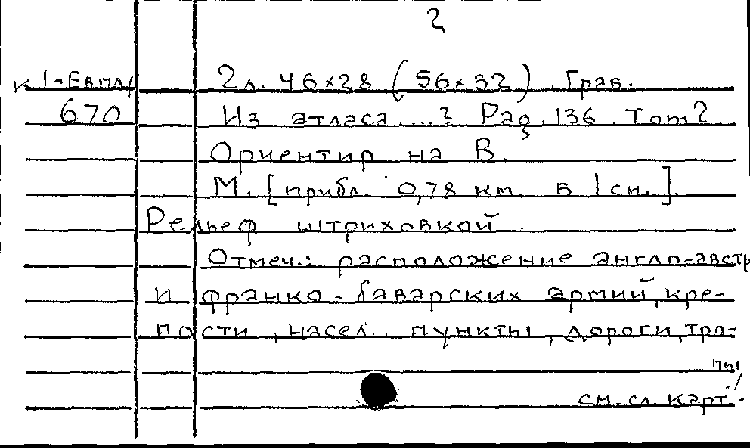 2
к 1-Евпл/ 2л. 46×28 (56×32) Грав.
670 Из атласа ...? Pag. 136 Tom 2
Ориентир на В.
М. [прибл. 0,78 км. в 1 см.]
Рельеф штриховкой
Отмеч.: расположение англо-австр
и франко-баварских армий, кре-
пости, насел. пункты, дороги, тра-
см. сл. карт.